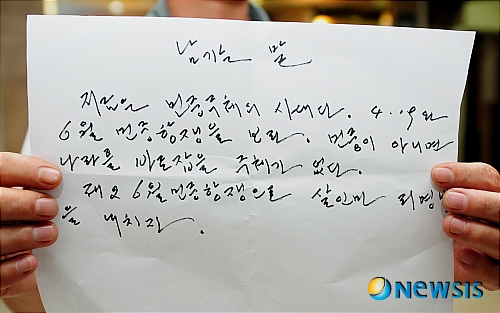 남기는 말
지금은 민중주체의 시대다. 4.19와
6월 민중항쟁을 보라. 민중이 아니면
나라를 바로잡을 주체가 없다.
제2 6월 민중항쟁으로 살인마 리명박
을 내치자.
newsis